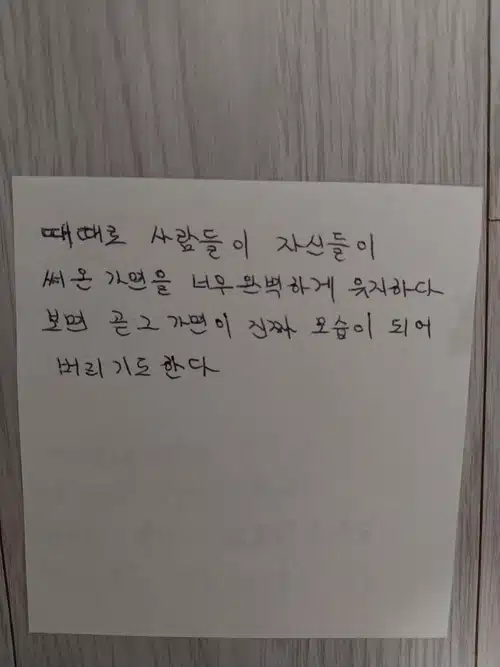 때때로 사람들이 자신들이
써온 가면을 너무 완벽하게 유지하다
보면 곧 그 가면이 진짜 모습이 되어
버리기도 한다